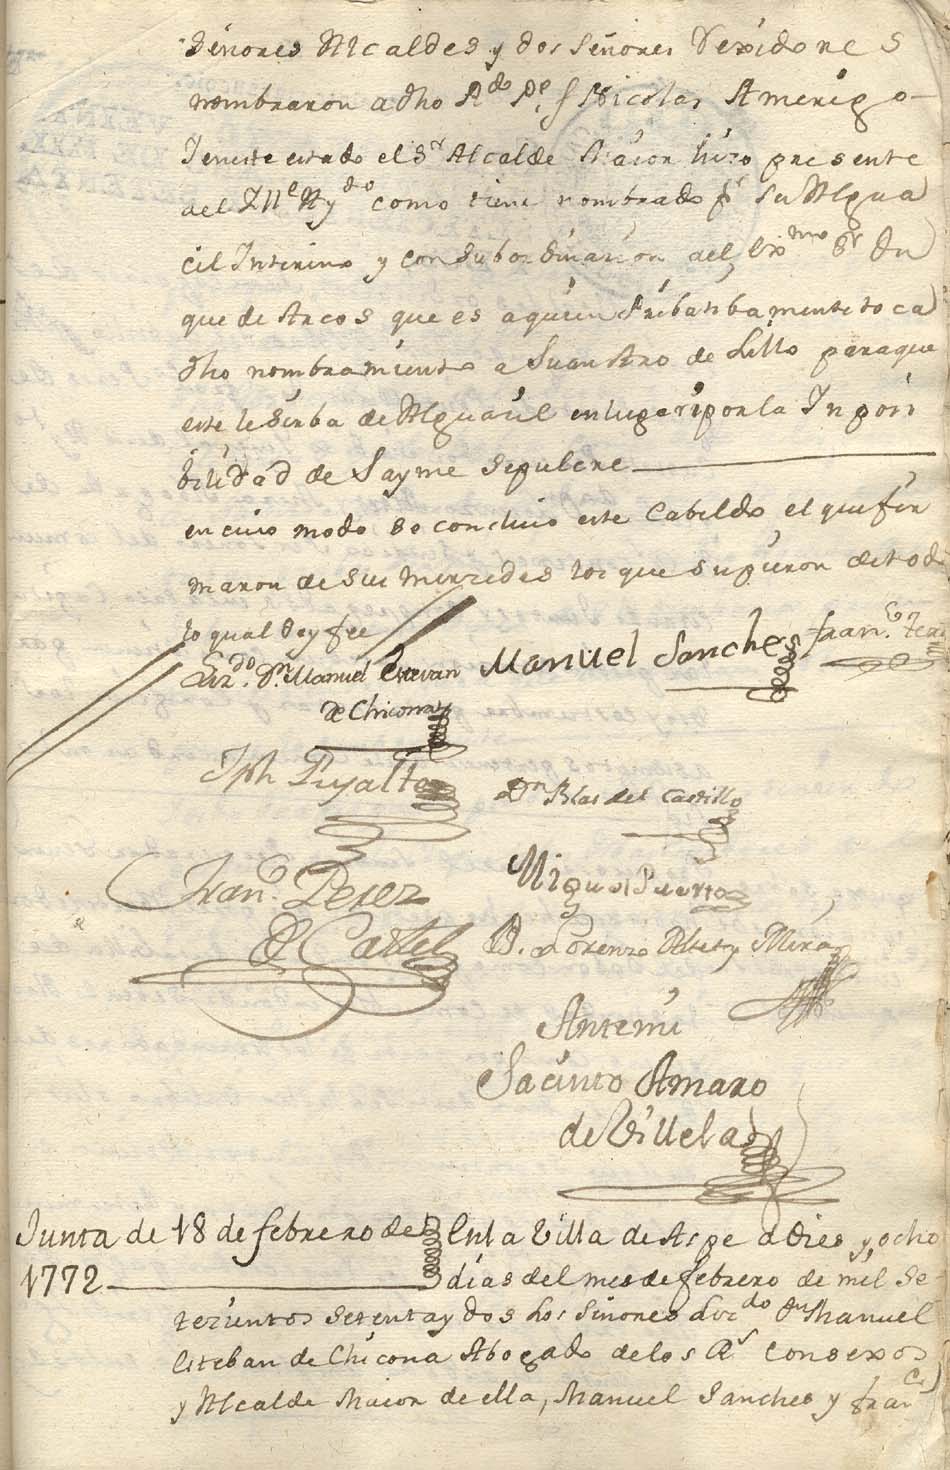 Señores Alcaldes y dos Señores Rexidores
nombraron a dho Rdo Pe fr Nicolas Amerigo
Ieneste estado el Sr Alcalde Maior hizo presente
del Ill Ay.do como tiene nombrado pr su Algua
cil Interino y con Subordinacion del Exmo Sr Du
que de Arcos que es aquien Pribatibamente toca
dho nombramiento a Juan Aro de Lillo paraque
este le Sirba de Alguacil enlugar i por la Inposi
bilidad de Jayme Sepulcre
en cuio modo se concluio este Cabildo el que fir
maron de sus Mercedes los que supieron de todo
lo qual doy fee
Lizdo. Dn Manuel Estevan
de Chicona
Manuel Sanches
Franco
Iph Puyalto
Dn Blas del Castillo
Franco. Perez
Miguel Puerto
D. Lorenzo y Mira
Antemi
Jacinto Amaro
de Villela
Junta de 18 de febrero de
1772
Enla Villa de Aspe a dies y ocho
dias del mes de febrero de mil Se
tecientos Setenta y dos los Señores Lizdo Dn Manuel
Esteban de Chicona Abogado de los Rs Consexos
y Alcalde Maior de ella, Manuel Sanches y Franco